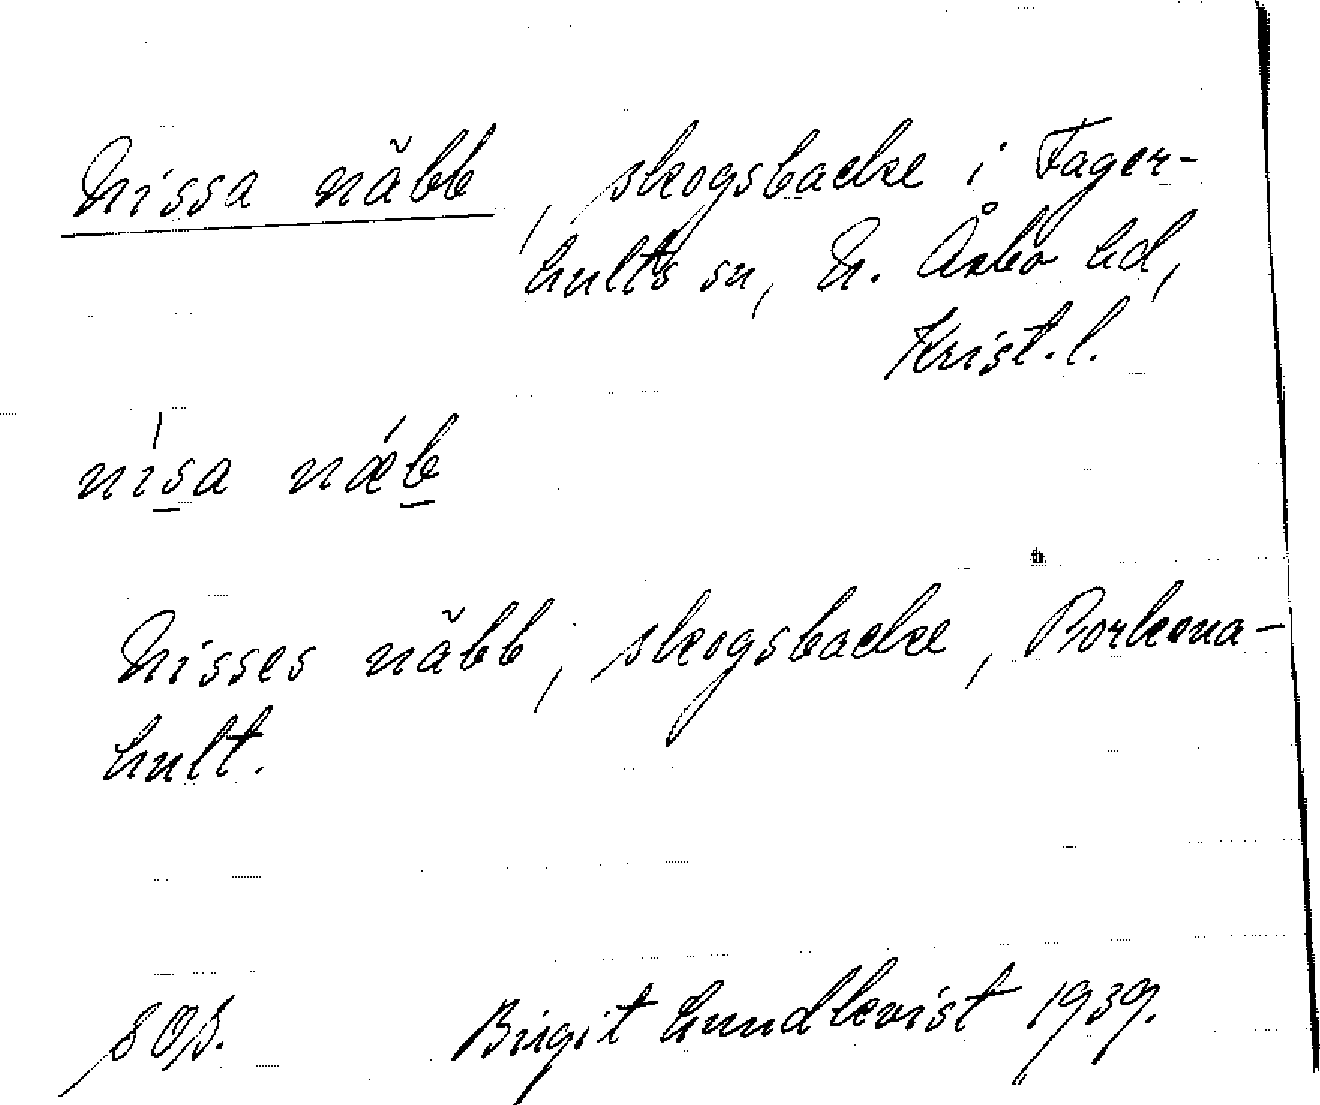 Nissa näbb, skogsbacke i Fager-
hults sn, N. Åsbo hd,
Krist. l.
nisa næb
Nisses näbb, skogsbacke, Porkena-
hult.
Birgit Lundkvist 1939.